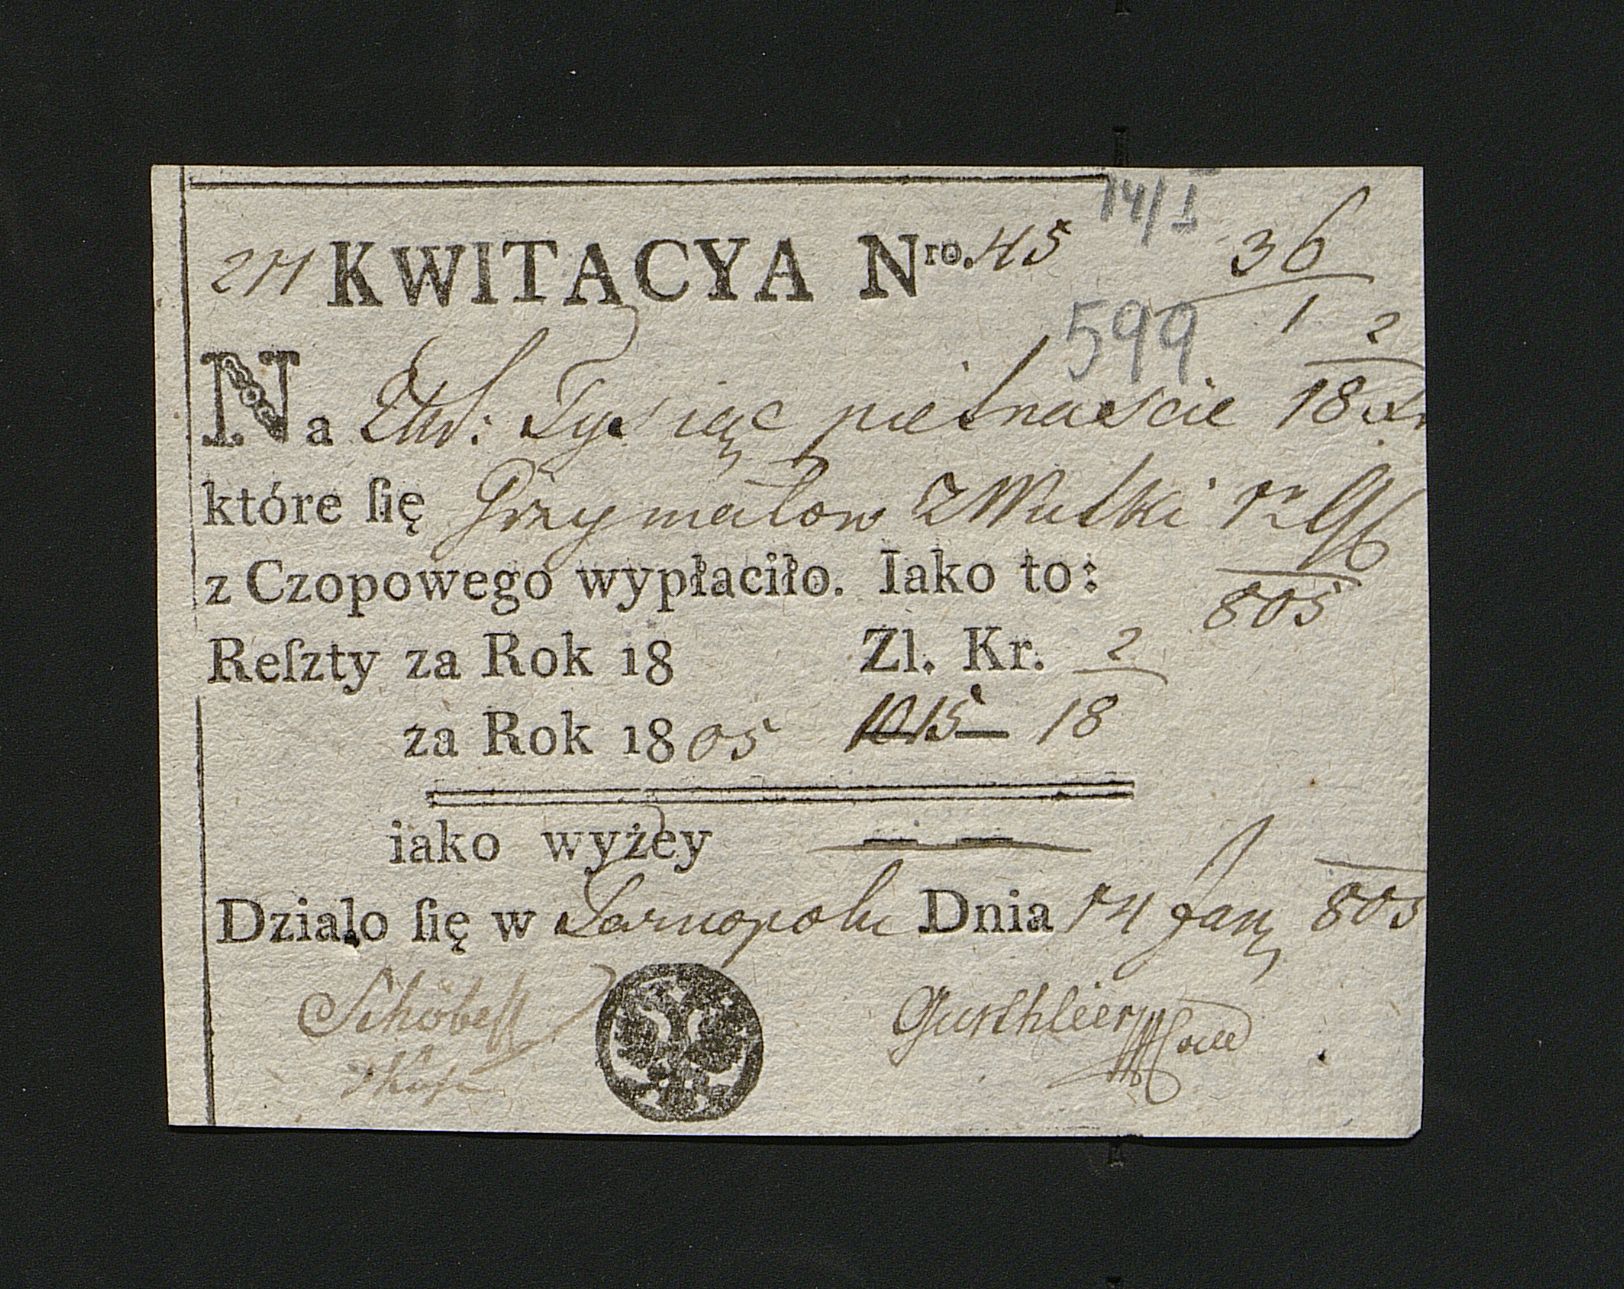 14/I
211 KWITACYA Nro. 45
36
1 2
599
Na Złr: Tysiąc piętnaście 18
które ſię Grzymałow z Wulki
z Czopowego wypłaciło. Iako to:
805
Reſzty za Rok 18 Zl. Kr. 2
za Rok 1805 1015 — 18
iako wyżey
Działo ſię w Tarnopolu Dnia 14 Jan 805